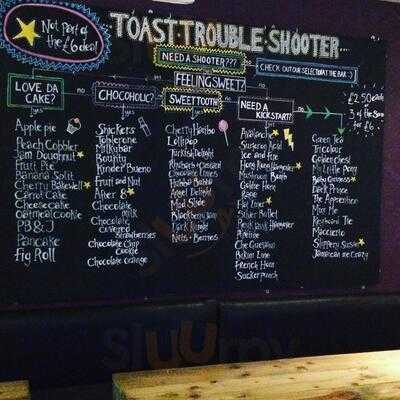 Not part of
the £6 deal
TOAST TROUBLE-SHOOTER
NEED A SHOOTER???
CHECK OUT OUR SELECTION AT THE BAR :)
FEELING SWEET?
no
LOVE DA
CAKE?
no
CHOCOHOLIC?
SWEET TOOTH?
NEED A
KICKSTART?
£2.50 each
3 of the same
for £6
yes
Apple pie
Peach Cobbler
Jam Doughnut
Fruit Pie
Banana Split
Cherry Bakewell
Carrot Cake
Cheesecake
Oatmeal cookie
PB & J
Pancake
Fig Roll
yes
Snickers
Toblerone
Milkybar
Bounty
Kinder Bueno
Fruit and Nut
After 8
Chocolate
Milk
Chocolate
covered
Strawberries
Chocolate Chip
Cookie
Chocolate Orange
yes
Cherry Haribo
Lollipop
Turkish Delight
Rhubarb + Custard
Chocolate Limes
Hubba Bubba
Angel Delight
Mud Slide
Blackberry
Dark Knight
Nuts + Berries
yes
Avalanche
Surgeon Acid
Ice and Fire
Mushroom Bomb
Golden Hoop
Rage
Flat Liner
Silver Bullet
Che Guevara
Baken Jones
French Horn
Sucker punch
Green Tea
Tricolour
Golden Chest
My Little Pony
Baby Guinness
Dark Prince
The Apprentice
Reservoir Tie
Macciento
Slippery Susie
Jamaican me Crazy